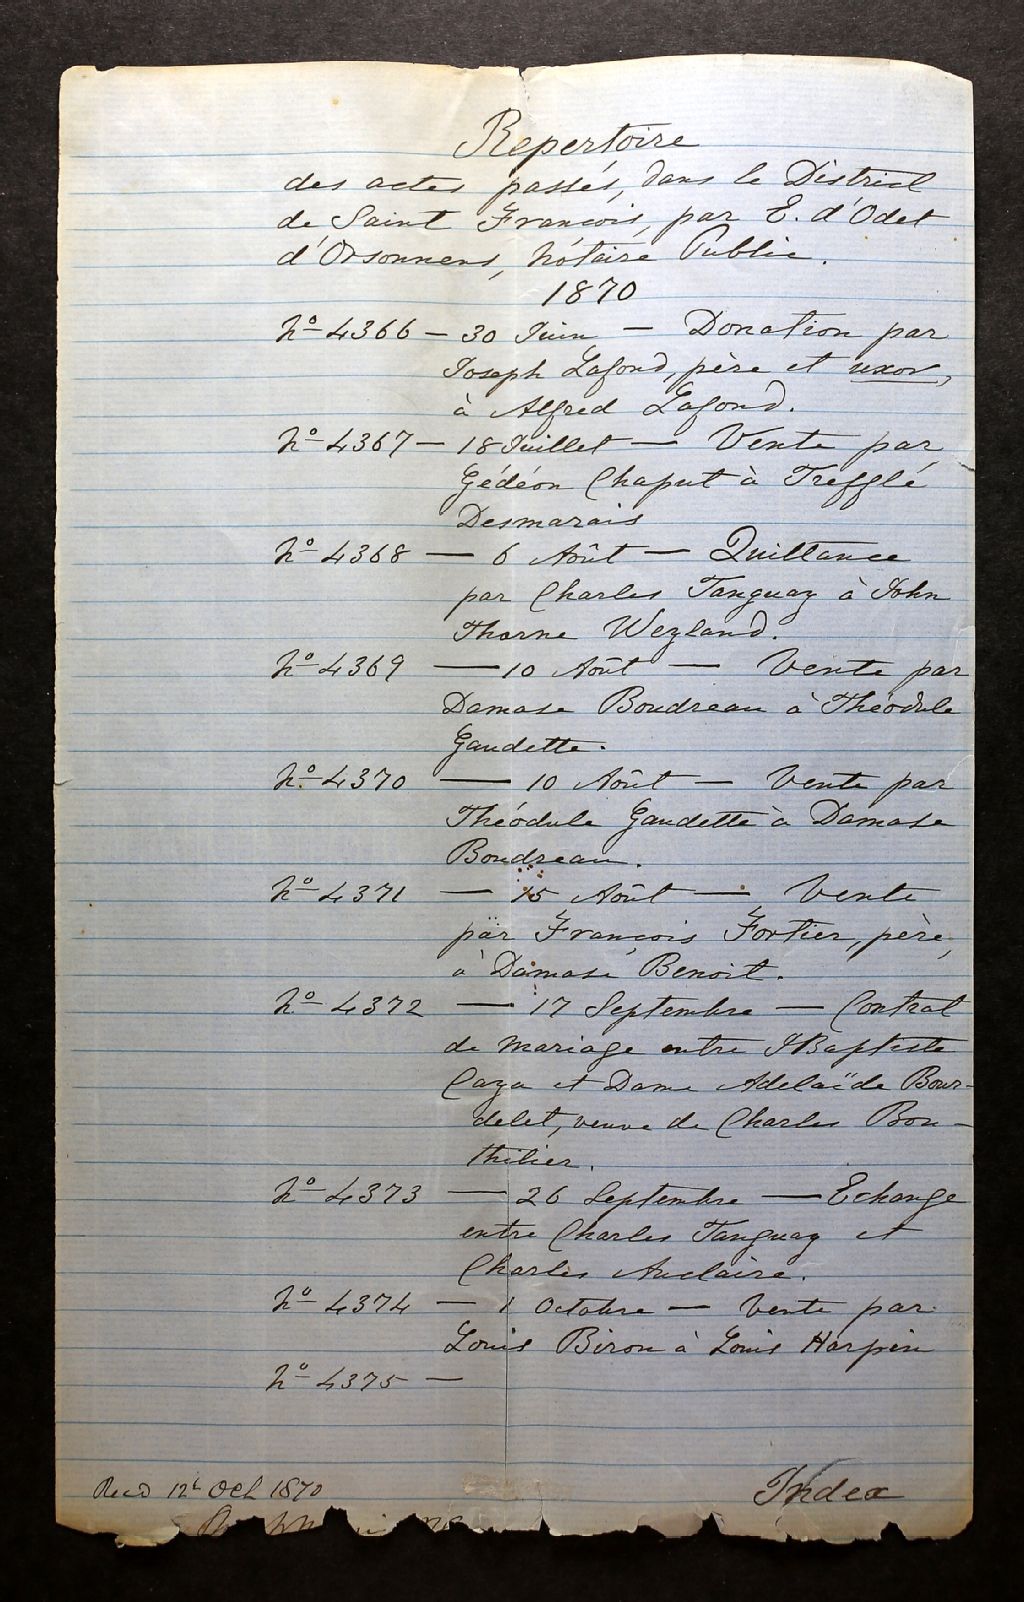 Repertoire
des actes passés, dans le District
de Saint François, par E. d'Odet
d'Orsonnens, Notaire Public.
1870
No 4366 — 30 Juin — Donation par
Joseph Lafond, père et uxor,
à Alfred Lafond.
No 4367 — 18 Juillet — Vente par
Gédéon Chaput à Trefflé
Desmarais
No 4368 — 6 Août — Quittance
par Charles Tanguay à John
Thorne Weyland.
No 4369 — 10 Août — Vente par
Damase Boudreau à Théodule
Gaudette.
No 4370 — 10 Août — Vente par
Théodule Gaudette à Damase
Boudreau.
No 4371 — 15 Août — Vente
par François Fortier, père,
à Damase Benoit.
No 4372 — 17 Septembre — Contrat
de mariage entre J Baptiste
Caza et Dame Adelaïde Bour-
delet, veuve de Charles Bou-
thilier.
No 4373 — 26 Septembre — Echange
entre Charles Tanguay et
Charles Auclaire.
No 4374 — 1 Octobre — Vente par
Louis Biron à Louis Harpin
No 4375 —
Recd 12t Oct 1870
Index